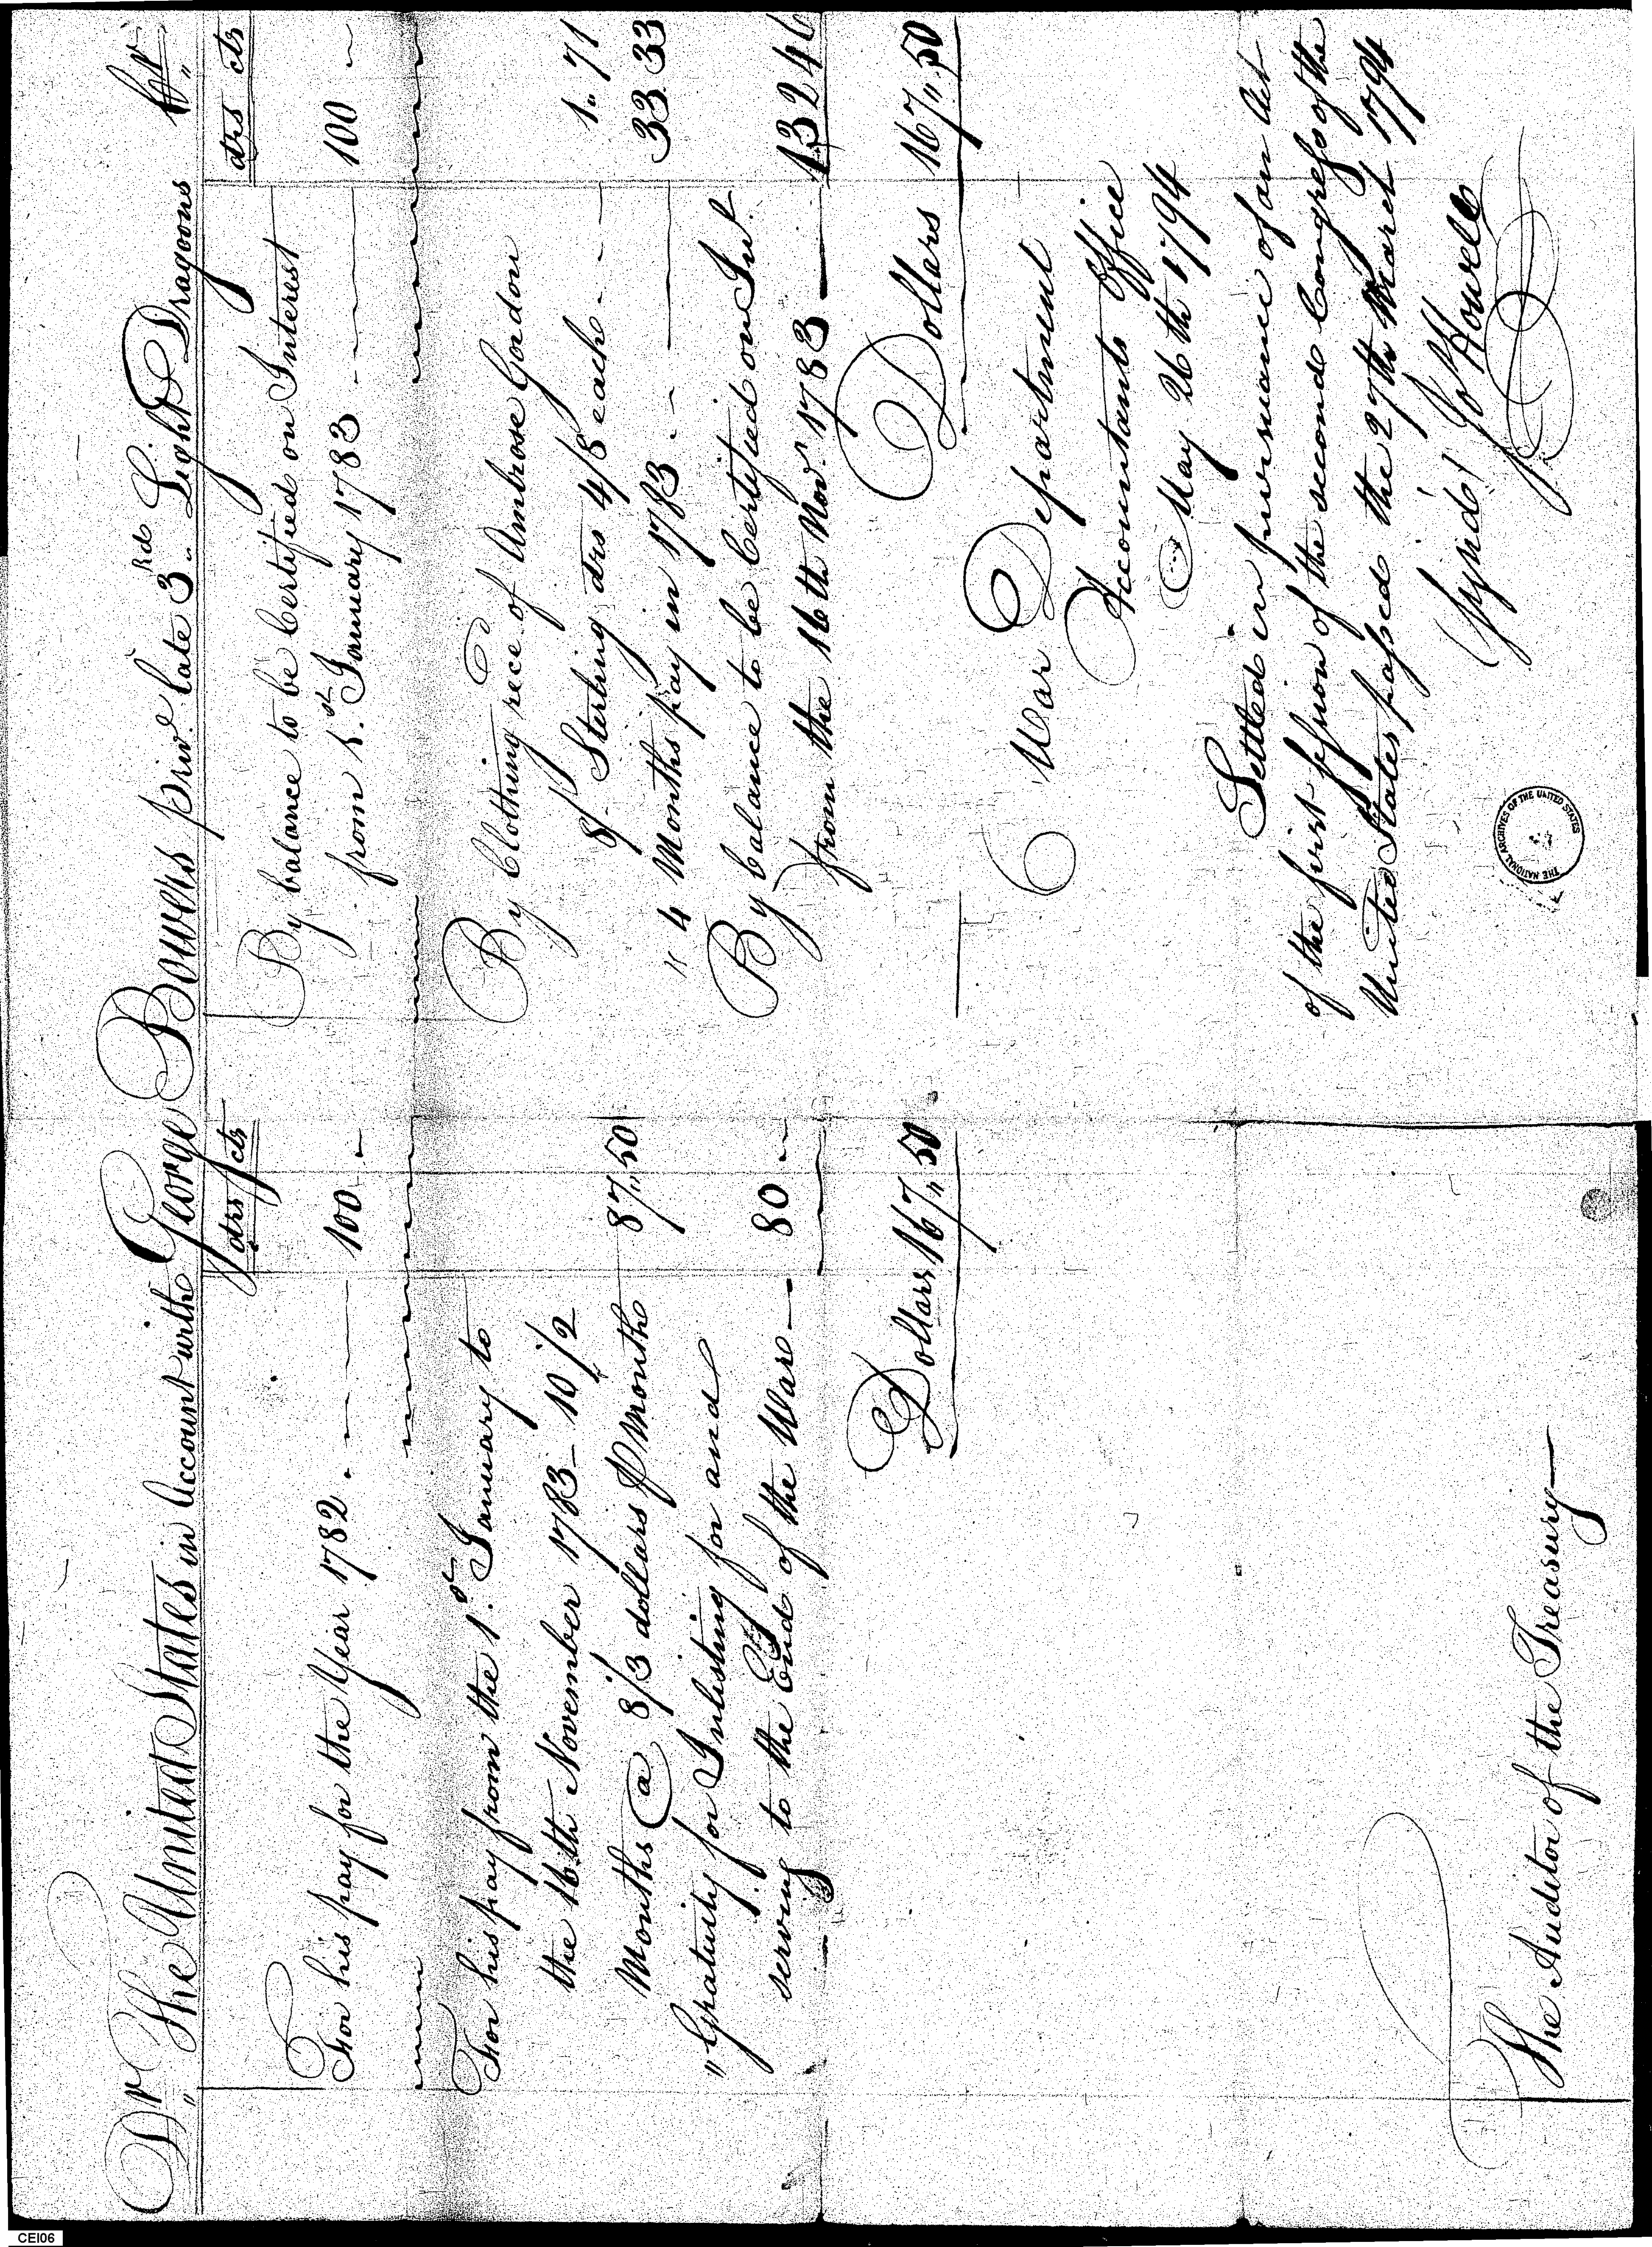 Dr The United States in Account with George Bowers priv.e late 3rd Light Dragoons Cr
drs cts
For his pay for the Year 1782 100
For his pay from the 1st January to
the 16th November 1783 - 10 1/2
Months @ 8/3 dollars P Month 87,,50
" Gratuity for Inlisting for and
serving to the End of the War 80
Dollars 167,,50
The Auditor of the Treasury
drs cts
By balance to be Certified on Interest
from 1st January 1783 100
By Clothing rece.d of Ambrose Gordon
8/ Sterling drs 4/8 each 1.71
" 4 Months pay in 1783 33.33
By balance to be Certified on Int.
from the 16th Nov.r 1783 132 46
Dollars 167,,50
War Department
Accountants Office
May 26th 1794
Settled in pursuance of an Act
of the first session of the second Congress of the
United States passed the 27th March 1794
Signed Jos Howell
THE NATIONAL ARCHIVES OF THE UNITED STATES
CEI06